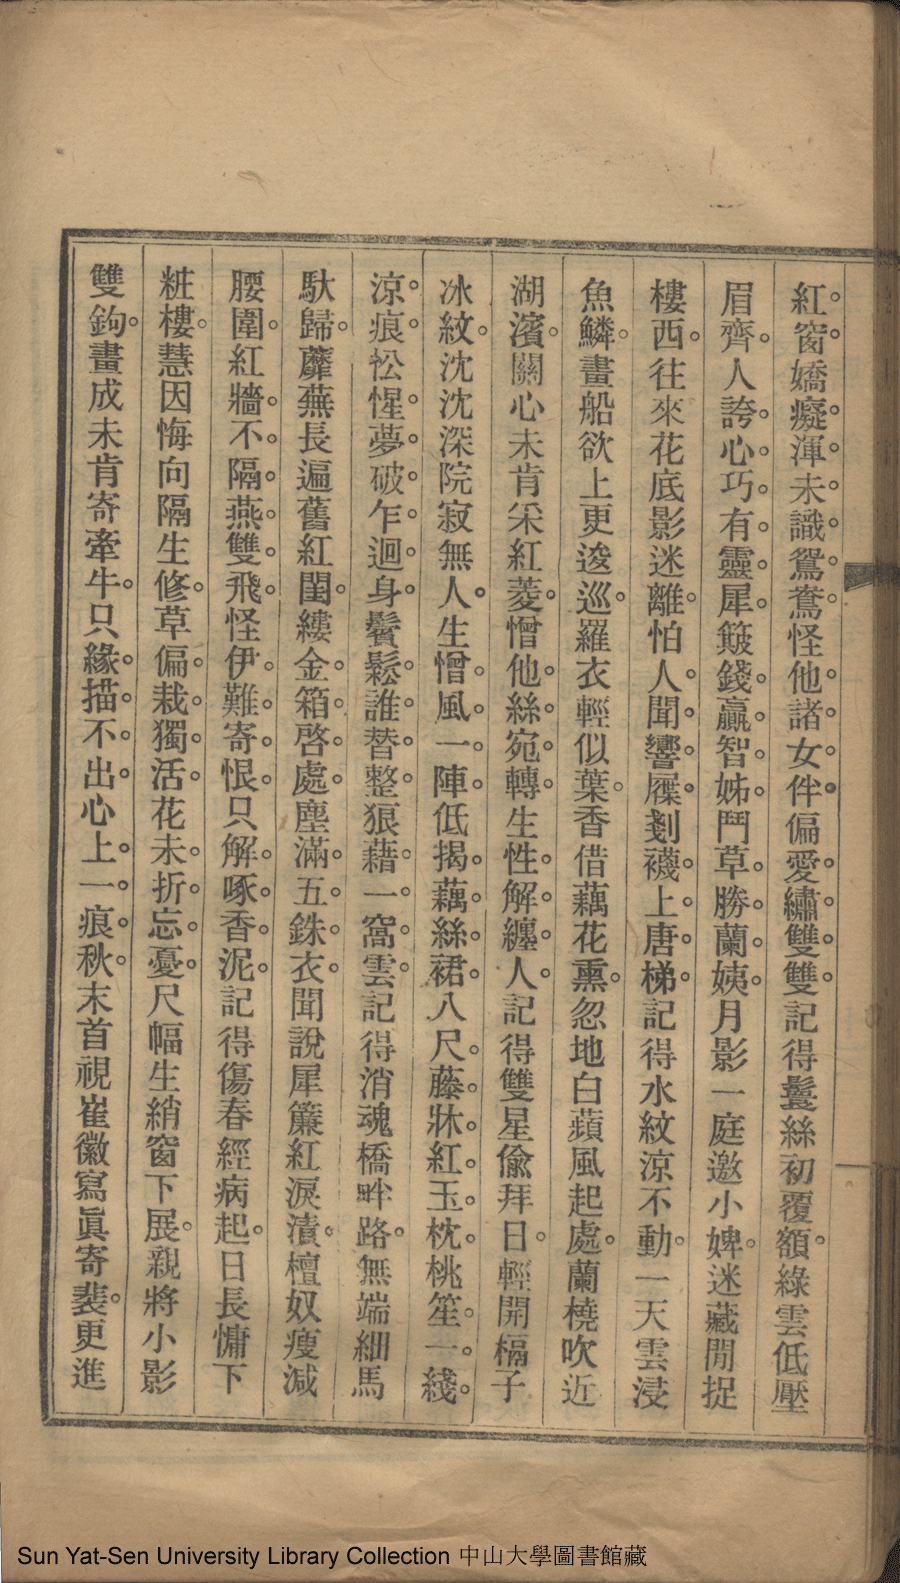 紅窗嬌癡渾未識鴛鴦怪他諸女伴偏愛繡雙雙記得鬟絲初覆額綠雲低壓
眉齊人誇心巧有靈犀簸錢贏智姊鬥草勝蘭姨月影一庭邀小婢迷藏閒捉
樓西往來花底影迷離怕人聞響屧剗襪上唐梯記得水紋涼不動一天雲浸
魚鱗畫船欲上更逡巡羅衣輕似葉香借藕花熏忽地白蘋風起處蘭橈吹近
湖濱關心未肯采紅菱憎他絲宛轉生性解纏人記得雙星偸拜日輕開槅子
冰紋沈沈深院寂無人生憎風一陣低揭藕絲裙八尺藤牀紅玉枕桃笙一綫
涼痕忪惺夢破乍迴身鬢鬆誰替整狼藉一窩雲記得消魂橋畔路無端細馬
馱歸蘼蕪長遍舊紅閨縷金箱啓處塵滿五銖衣聞說犀簾紅淚漬檀奴瘦減
腰圍紅牆不隔燕雙飛怪伊難寄恨只解啄香泥記得傷春經病起日長慵下
粧樓慧因悔向隔生修草偏栽獨活花未折忘憂尺幅生綃窗下展親將小影
雙鉤畫成未肯寄牽牛只緣描不出心上一痕秋末首視崔徽寫眞寄裴更進
Sun Yat-Sen University Library Collection 中山大學圖書館藏